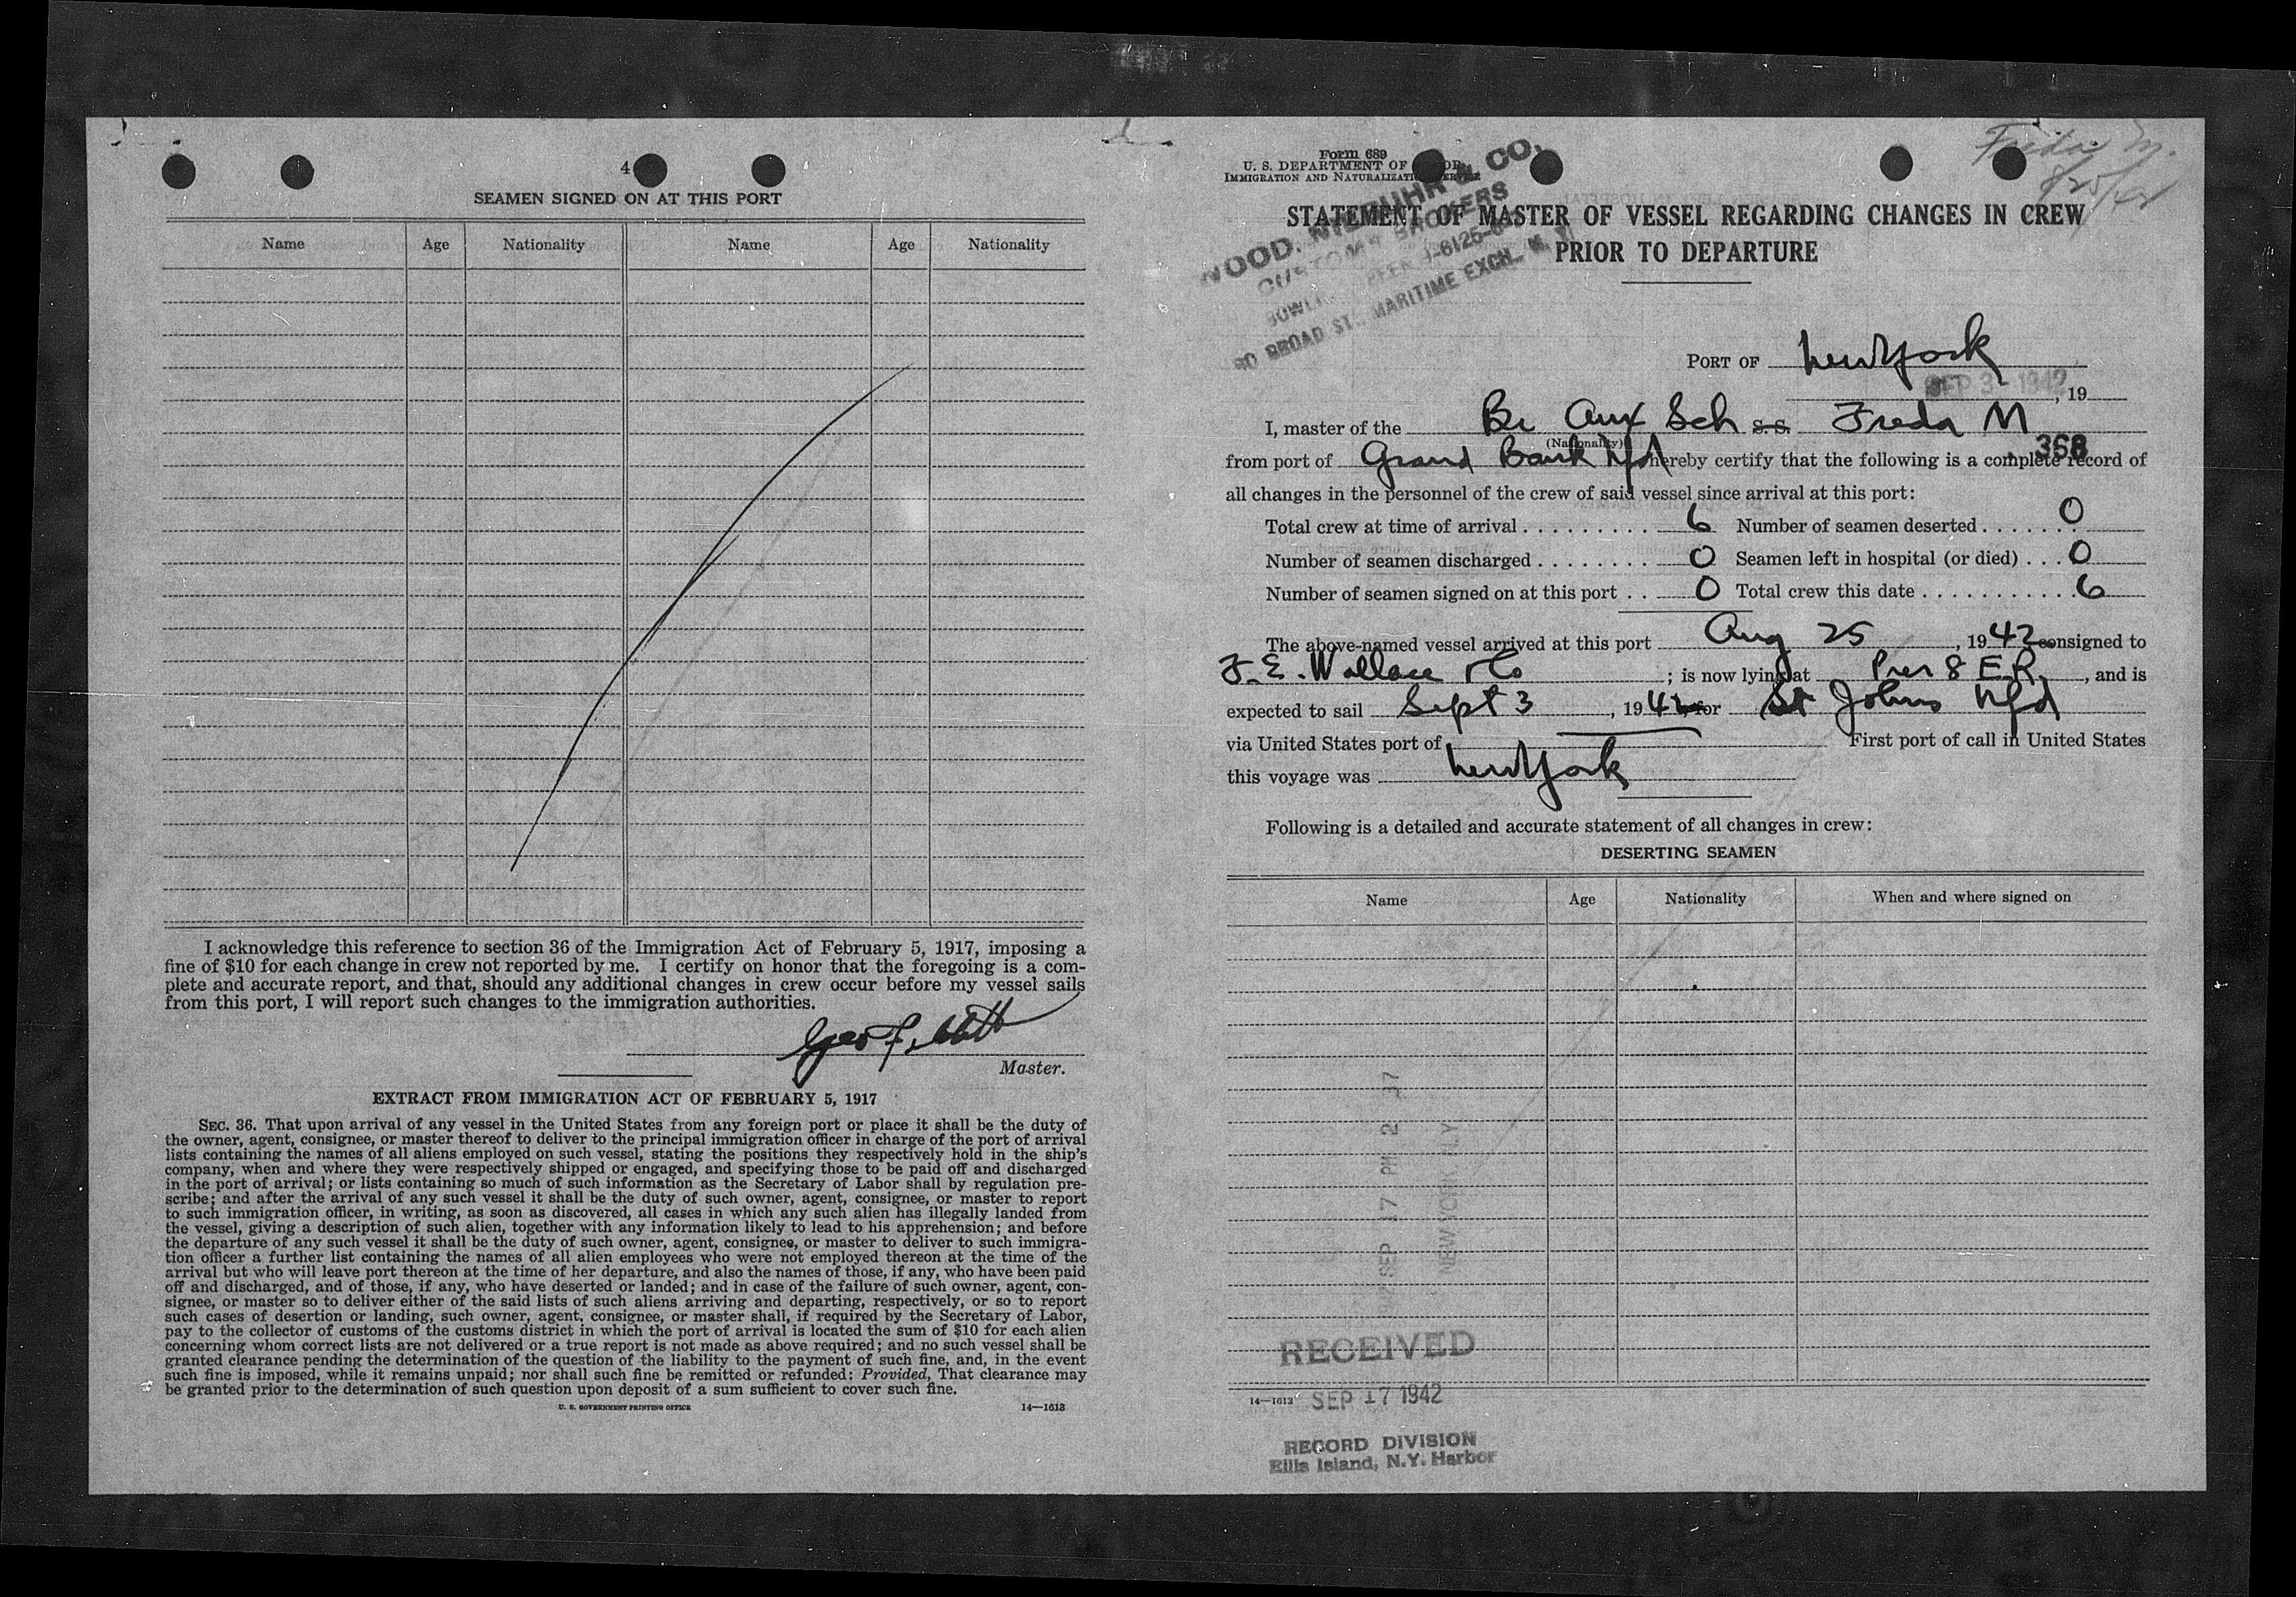 4
SEAMEN SIGNED ON AT THIS PORT
Name Age Nationality Name Age Nationality
I acknowledge this reference to section 36 of the Immigration Act of February 5, 1917, imposing a
fine of $10 for each change in crew not reported by me. I certify on honor that the foregoing is a com-
plete and accurate report, and that, should any additional changes in crew occur before my vessel sails
from this port, I will report such changes to the immigration authorities.
Geo F.
Master.
EXTRACT FROM IMMIGRATION ACT OF FEBRUARY 5, 1917
SEC. 36. That upon arrival of any vessel in the United States from any foreign port or place it shall be the duty of
the owner, agent, consignee, or master thereof to deliver to the principal immigration officer in charge of the port of arrival
lists containing the names of all aliens employed on such vessel, stating the positions they respectively hold in the ship's
company, when and where they were respectively shipped or engaged, and specifying those to be paid off and discharged
in the port of arrival; or lists containing so much of such information as the Secretary of Labor shall by regulation pre-
scribe; and after the arrival of any such vessel it shall be the duty of such owner, agent, consignee, or master to report
to such immigration officer, in writing, as soon as discovered, all cases in which any such alien has illegally landed from
the vessel, giving a description of such alien, together with any information likely to lead to his apprehension; and before
the departure of any such vessel it shall be the duty of such owner, agent, consignee, or master to deliver to such immigra-
tion officer a further list containing the names of all alien employees who were not employed thereon at the time of the
arrival but who will leave port thereon at the time of her departure, and also the names of those, if any, who have been paid
off and discharged, and of those, if any, who have deserted or landed; and in case of the failure of such owner, agent, con-
signee, or master so to deliver either of the said lists of such aliens arriving and departing, respectively, or so to report
such cases of desertion or landing, such owner, agent, consignee, or master shall, if required by the Secretary of Labor,
pay to the collector of customs of the customs district in which the port of arrival is located the sum of $10 for each alien
concerning whom correct lists are not delivered or a true report is not made as above required; and no such vessel shall be
granted clearance pending the determination of the question of the liability to the payment of such fine, and, in the event
such fine is imposed, while it remains unpaid; nor shall such fine be remitted or refunded: Provided, That clearance may
be granted prior to the determination of such question upon deposit of a sum sufficient to cover such fine.
U. S. GOVERNMENT PRINTING OFFICE 14—1613
Form 689
U. S. DEPARTMENT OF LABOR
IMMIGRATION AND NATURALIZATION SERVICE
Frida M.
8/25/42
WOOD, NIEBUHR & CO.
CUSTOM BROKERS
80 BROAD ST., MARITIME EXCH., N. Y.
STATEMENT OF MASTER OF VESSEL REGARDING CHANGES IN CREW
PRIOR TO DEPARTURE
PORT OF New York
SEP 3 - 1942, 19
I, master of the Br Aux Sch s.s. Freda M
(Nationality)
368
from port of Grand Bank Nfd hereby certify that the following is a complete record of
all changes in the personnel of the crew of said vessel since arrival at this port:
Total crew at time of arrival . . . . . . . . . . 6 Number of seamen deserted . . . . . . . 0
Number of seamen discharged . . . . . . . . 0 Seamen left in hospital (or died) . . . 0
Number of seamen signed on at this port . . 0 Total crew this date . . . . . . . . . . . 6
The above-named vessel arrived at this port Aug 25, 1942 consigned to
F. E. Wallace & Co; is now lying at Pier 8 E.R., and is
expected to sail Sept 3, 1942, for St Johns Nfd
via United States port of First port of call in United States
this voyage was New York
Following is a detailed and accurate statement of all changes in crew:
DESERTING SEAMEN
Name Age Nationality When and where signed on
SEP 17 PM 2 37
NEW YORK N.Y.
RECEIVED
14—1613 SEP 17 1942
RECORD DIVISION
Ellis Island, N.Y. Harbor